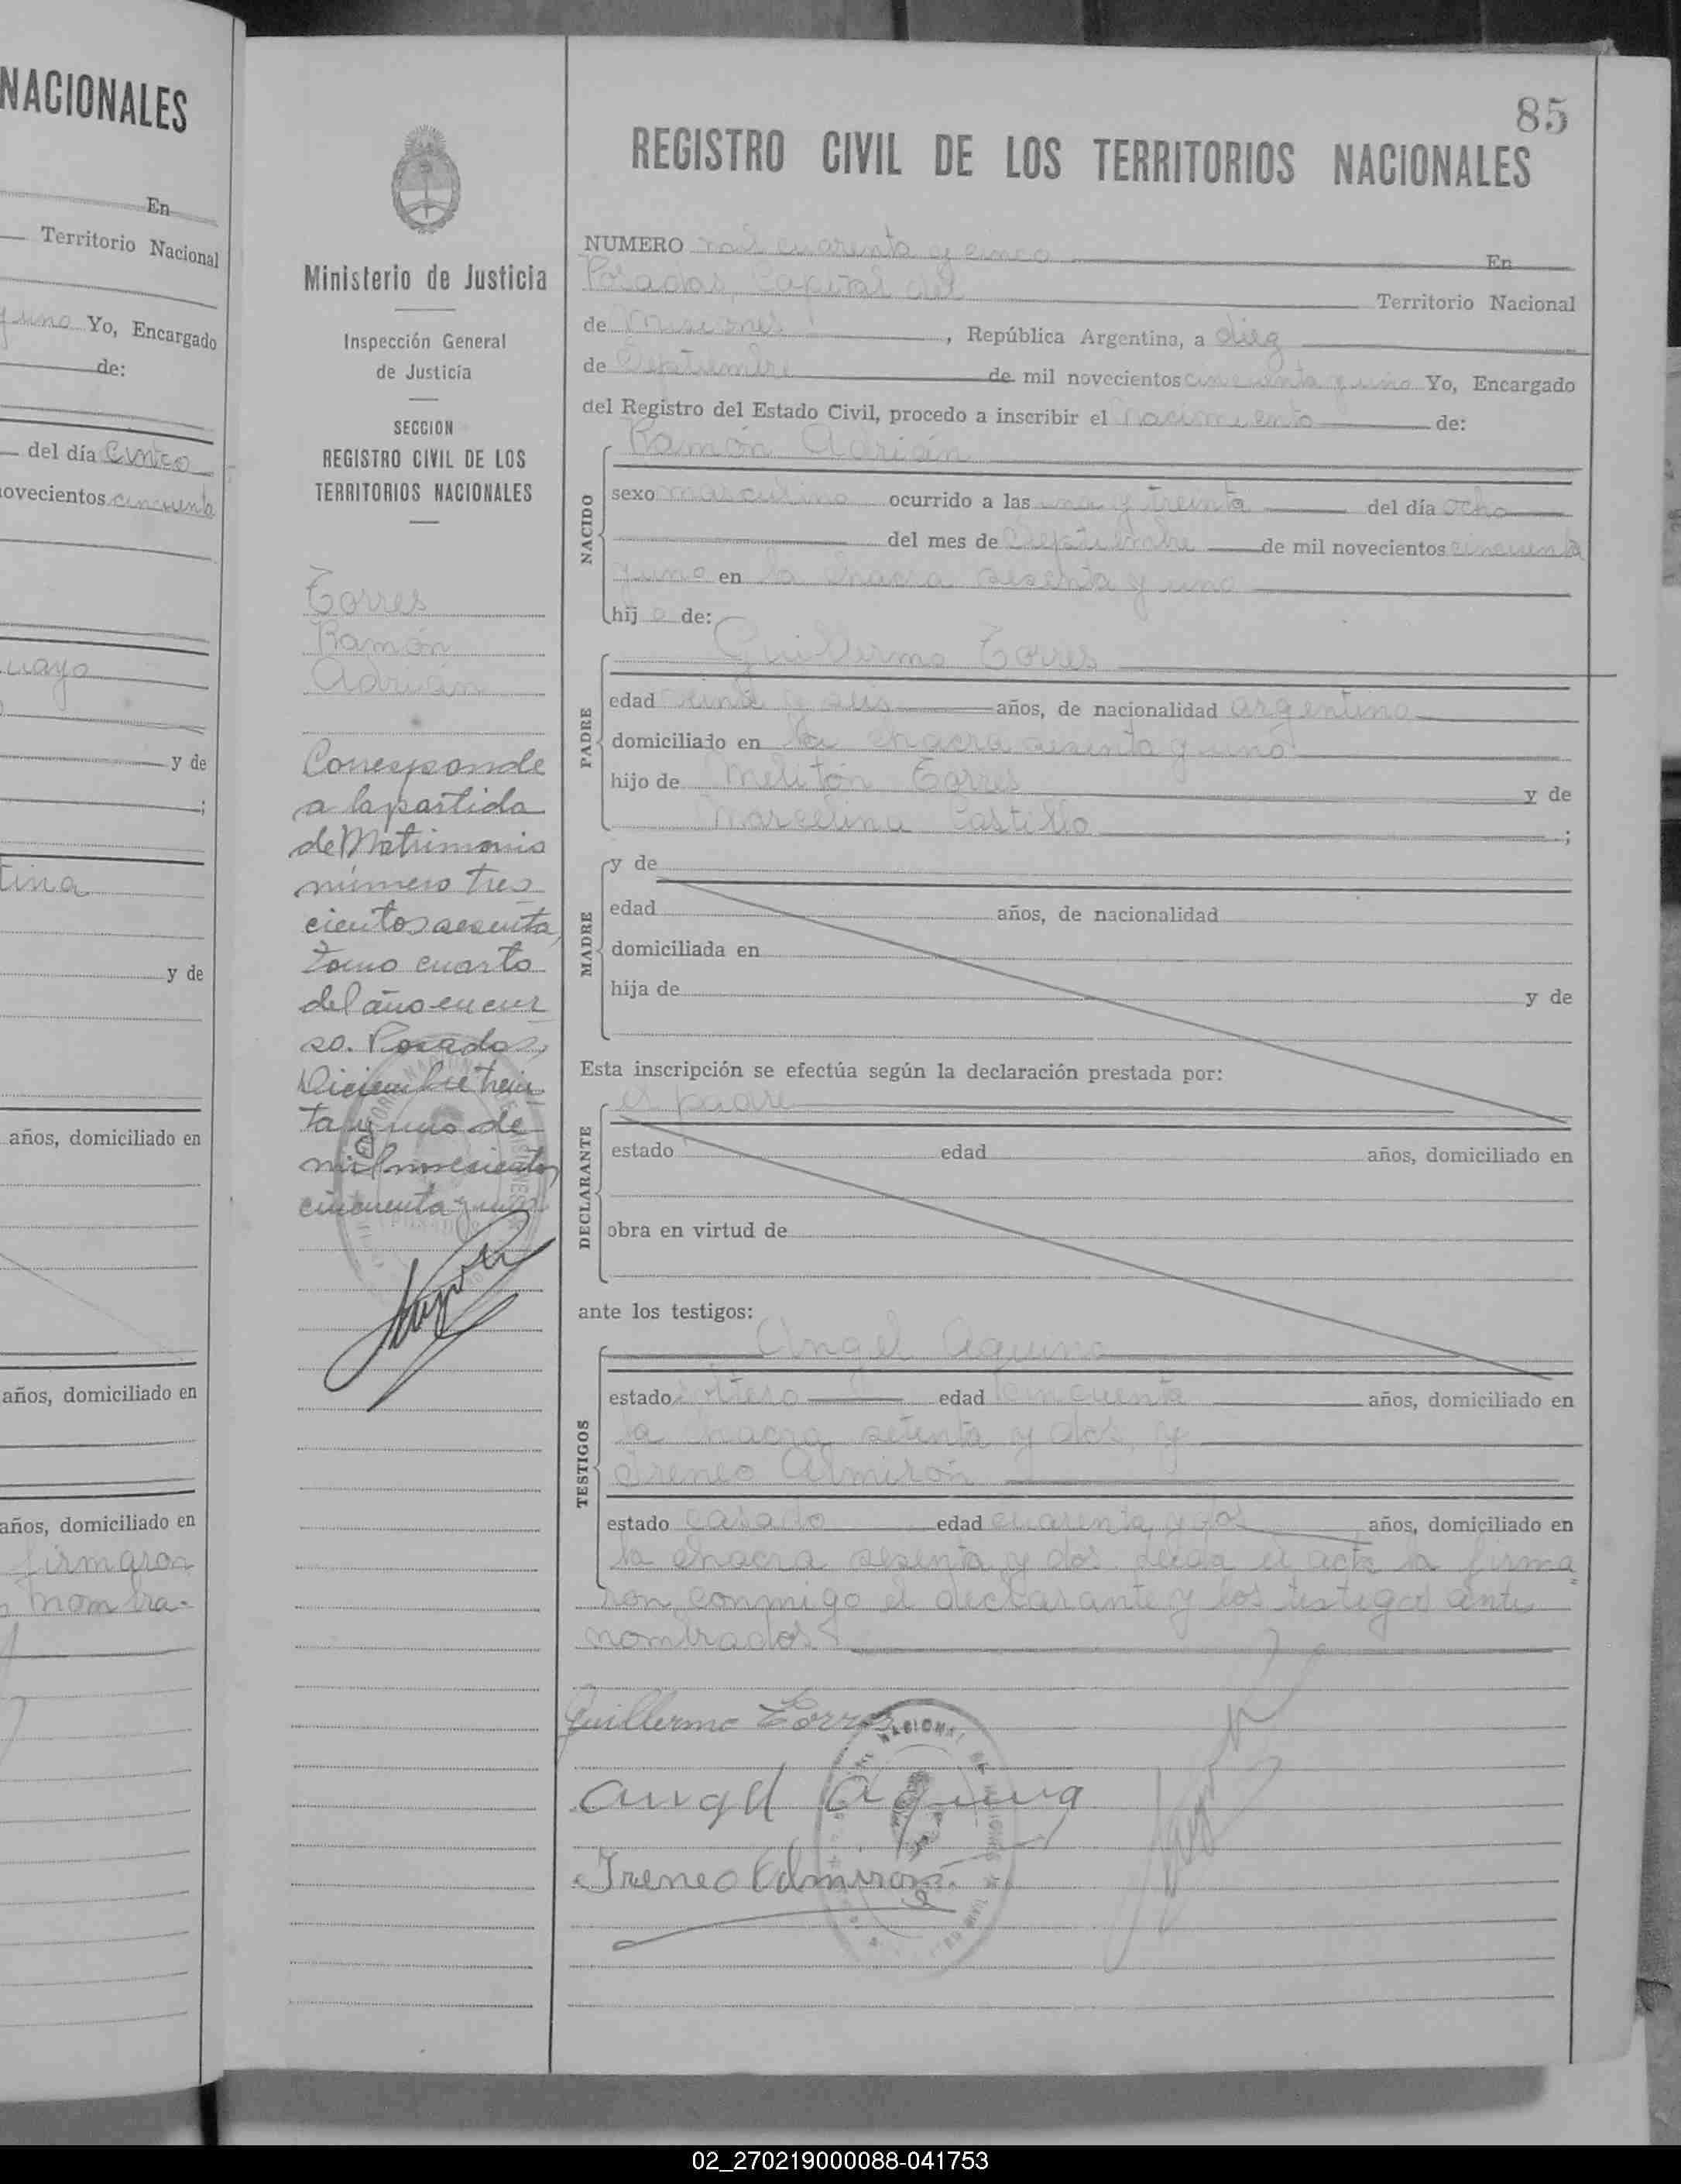 NACIONALES
En
Territorio Nacional
y uno Yo, Encargado
de:
del día Cinco
novecientos cincuenta
uayo
y de
;
tina
y de
años, domiciliado en
años, domiciliado en
años, domiciliado en
firmaron
nombra-
Ministerio de Justicia
Inspección General
de Justicia
SECCION
REGISTRO CIVIL DE LOS
TERRITORIOS NACIONALES
Torres
Ramón
Adrián
Corresponde
a la partida
de Matrimonio
número tres
cientos sesenta,
Tomo cuarto
del año en cur
so. Posadas,
Diciembre trein
ta y uno de
mil novecientos
cincuenta y uno
85
REGISTRO CIVIL DE LOS TERRITORIOS NACIONALES
NUMERO mil cuarenta y cinco En
Posadas, Capital del Territorio Nacional
de Misiones, República Argentina, a diez
de Septiembre de mil novecientos cincuenta y uno Yo, Encargado
del Registro del Estado Civil, procedo a inscribir el Nacimiento de:
Ramón Adrián
NACIDO
sexo masculino ocurrido a las una y treinta del día ocho
del mes de Septiembre de mil novecientos cincuenta
y uno en la chacra sesenta y uno
hij o de:
Guillermo Torres
PADRE
edad veinte y seis años, de nacionalidad argentina
domiciliado en la chacra sesenta y uno
hijo de Melitón Torres y de
Marcelina Castillo ;
MADRE
y de
edad años, de nacionalidad
domiciliada en
hija de y de
Esta inscripción se efectúa según la declaración prestada por:
el padre
DECLARANTE
estado edad años, domiciliado en
obra en virtud de
ante los testigos:
Angel Aquino
TESTIGOS
estado soltero edad cincuenta años, domiciliado en
la chacra setenta y dos, y
Ireneo Almirón
estado casado edad cuarenta y dos años, domiciliado en
la chacra sesenta y dos. Leida el acta la firma
ron conmigo el declarante y los testigos ante
nombrados
Guillermo Torres
Angel Aquino
Ireneo Almiron
02_270219000088-041753